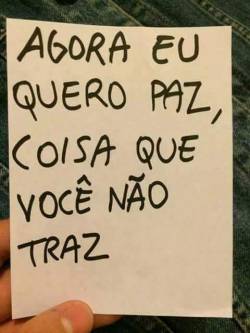 AGORA EU
QUERO PAZ,
COISA QUE
VOCÊ NÃO
TRAZ